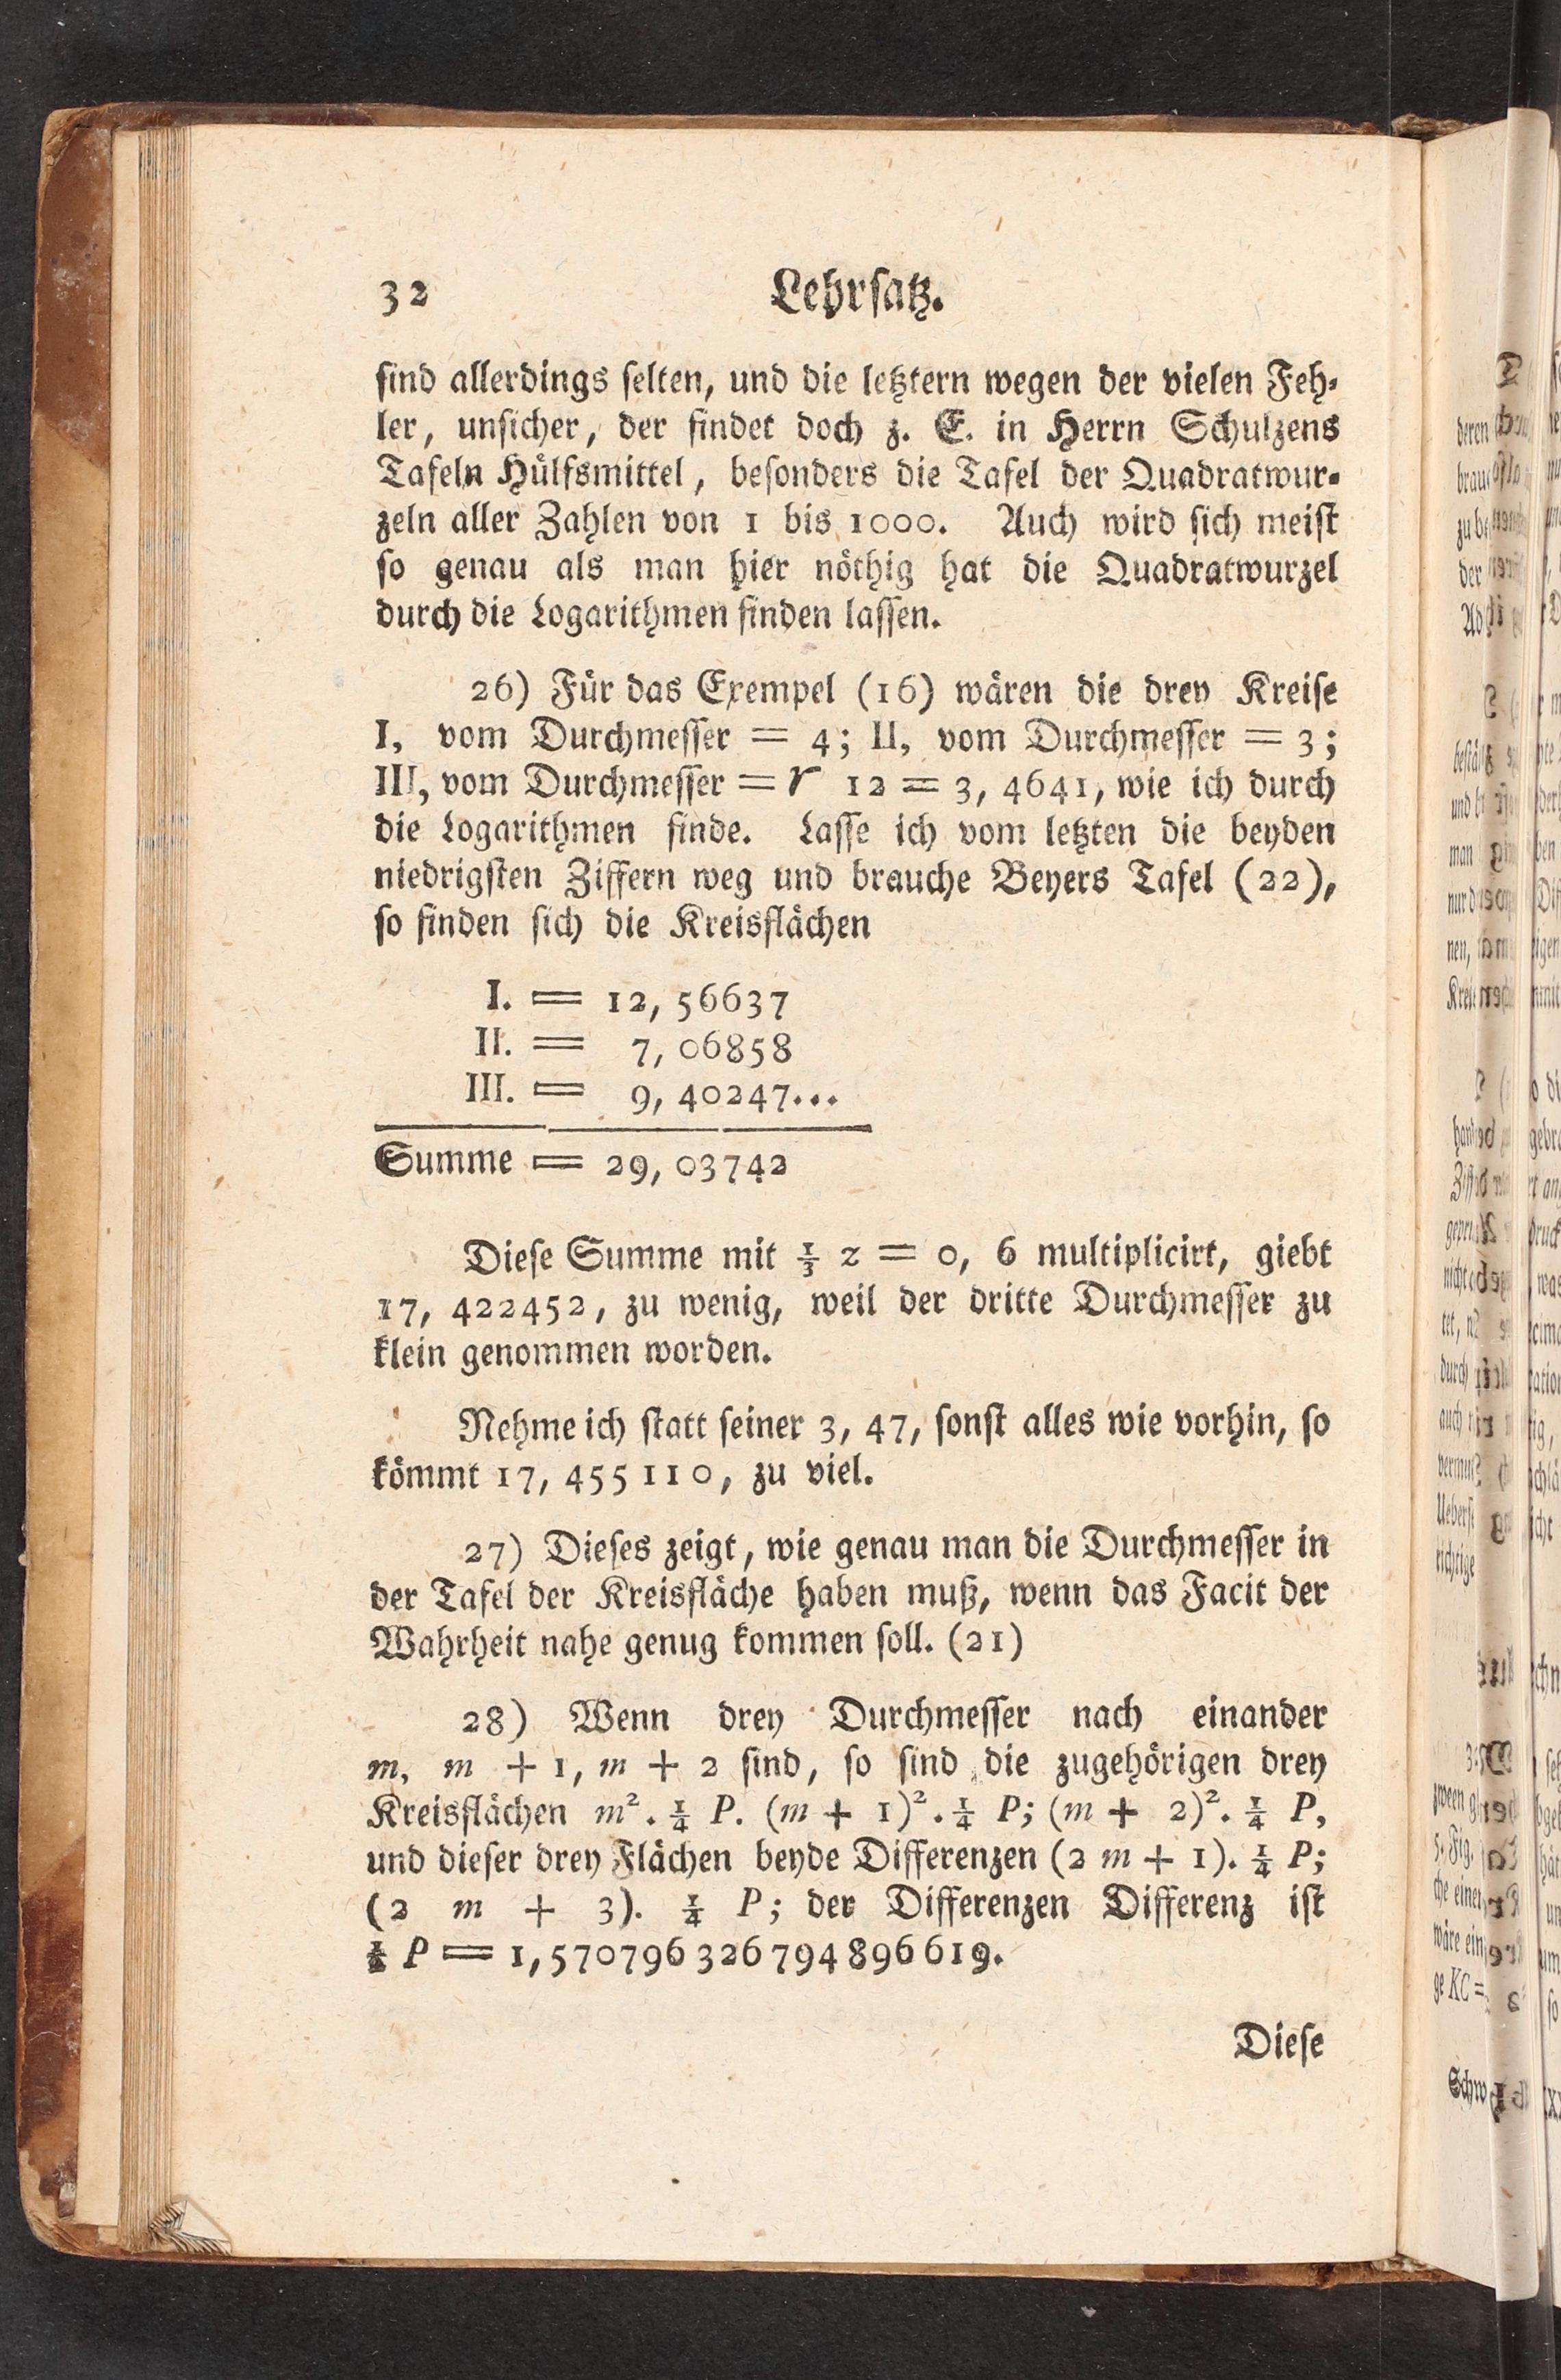 32 Lehrſatz.
ſind allerdings ſelten, und die letztern wegen der vielen Feh-
ler, unſicher, der findet doch z. E. in Herrn Schulzens
Tafeln Hülfsmittel, beſonders die Tafel der Quadratwur-
zeln aller Zahlen von 1 bis 1000. Auch wird ſich meiſt
ſo genau als man hier nöthig hat die Quadratwurzel
durch die Logarithmen finden laſſen.
26) Für das Exempel (16) wären die drey Kreiſe
I, vom Durchmeſſer = 4; II, vom Durchmeſſer = 3;
III, vom Durchmeſſer = r 12 = 3, 4641, wie ich durch
die Logarithmen finde. Laſſe ich vom letzten die beyden
niedrigſten Ziffern weg und brauche Beyers Tafel (22),
ſo finden ſich die Kreisflächen
I. = 12, 56637
II. = 7, 06858
III. = 9, 40247...
Summe = 29, 03742
Dieſe Summe mit ⅓ z = 0, 6 multiplicirt, giebt
17, 422452, zu wenig, weil der dritte Durchmeſſer zu
klein genommen worden.
Nehme ich ſtatt ſeiner 3, 47, ſonſt alles wie vorhin, ſo
kömmt 17, 455110, zu viel.
27) Dieſes zeigt, wie genau man die Durchmeſſer in
der Tafel der Kreisfläche haben muß, wenn das Facit der
Wahrheit nahe genug kommen ſoll. (21)
28) Wenn drey Durchmeſſer nach einander
m, m + 1, m + 2 ſind, ſo ſind die zugehörigen drey
Kreisflächen m². ¼ P. (m + 1)². ¼ P; (m + 2)². ¼ P,
und dieſer drey Flächen beyde Differenzen (2 m + 1). ¼ P;
(2 m + 3). ¼ P; der Differenzen Differenz iſt
½ P = 1,570796326794896619.
Dieſe